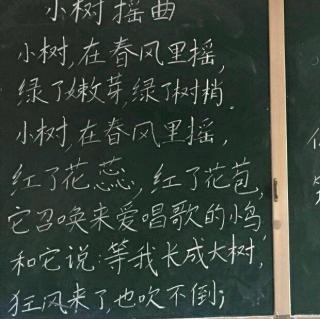 小树摇曲
小树,在春风里摇,
绿了嫩芽,绿了树梢.
小树,在春风里摇,
红了花蕊,红了花苞,
它召唤来爱唱歌的小鸟,
和它说:等我长成大树,
狂风来了,也吹不倒;